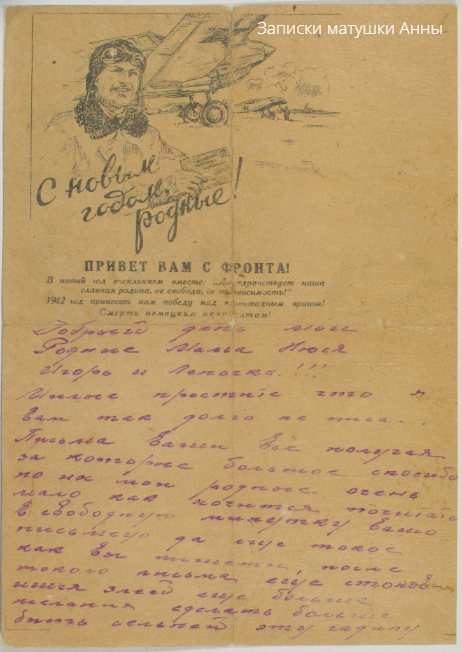 Записки матушки Анны
С новым
годом,
родные!
ПРИВЕТ ВАМ С ФРОНТА!
В новый год воскликнем вместе: „Да здравствует наша
славная родина, ее свобода, ее независимость!“
1942 год принесет нам победу над кровожадным врагом!
Смерть немецким оккупантам!
Добрый день мои
Родные Мама Нюся
Игорь и !!!
Милые простите что я
вам так долго не писал.
Письма Ваши Все получаю
за которые большое спасибо
но их мои родные очень
мало как хочится почитать
В свободную минутку Вашо
письмецо да еще токое
как Вы пишети, после
токого письма еще
злей еще больше
желания сделать больше
бить сельней эту гадину